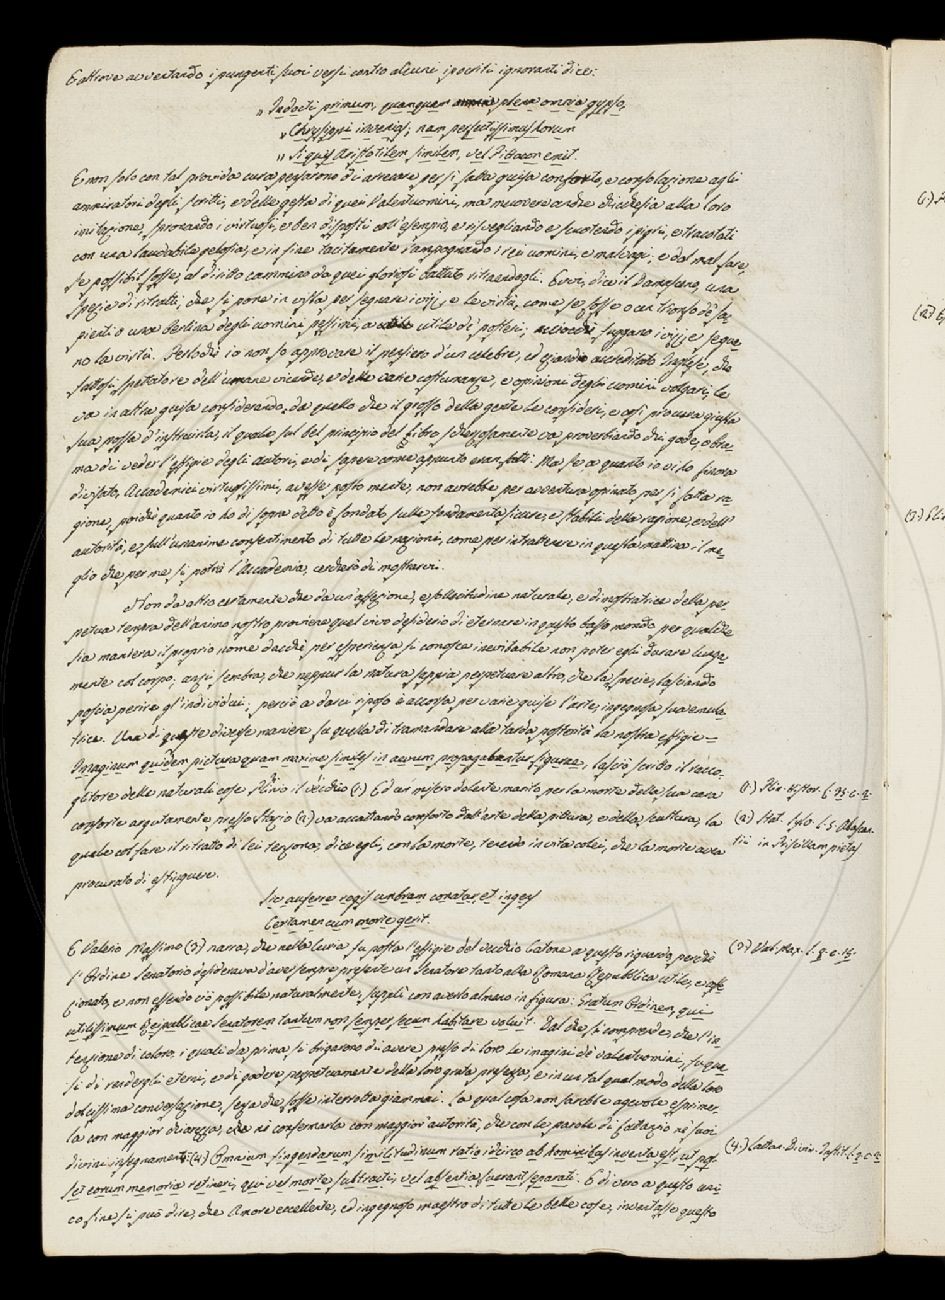 E altrove avventando i pungenti suoi versi contro alcuni ipocriti ignoranti dice:
„ Indocti primum, quamquam plena omnia gypso,
„ Chrysippi invenias; nam perfectissimus horum
„ Si quis Aristotelem similem, vel Pittacon emit.
E non solo con tal provida cura pensarono di arrecare per sì fatta guisa conforto, e consolazione agli
ammiratori degli scritti, e delle gesta di quei valentuomini, ma muovere anche chicchesia alla loro
imitazione, spronando i virtuosi, e ben disposti coll'esempio, e risvegliando e scuotendo i pigri, e tracotati
con una laudabile gelosia, e in fine tacitamente rampognando i rei uomini, e malvagi, e dal mal fare,
se possibil fosse, al diritto cammino da quei gloriosi battuto ritraendogli. Evvi, dice il Damasceno, una
spezie di ritratti, che si pone in vista per segnare i vizj, e le virtù, come se fosse o un trionfo de' sa-
pienti o una berlina degli uomini pessimi, a utile de' posteri; fuggano i vizj, e segua-
no la virtù. Perlochè io non so approvare il pensiero d'un celebre, ed accreditato Inglese, che
fattosi spettatore dell'umane vicende, e delle varie costumanze, e opinioni degli uomini volgari, le
va in altra guisa considerando, da quello che il grosso della gente le consideri, e così procura giusta
sua possa d'instruirla, il quale sul bel principio del libro sdegnosamente va proverbiando chi gode, o bra-
ma di veder l'effigie degli autori, e di sapere come appunto eran fatti. Ma se a quanto io vi ho finora
divisato, Accademici virtuosissimi, avesse posto mente, non avrebbe per avventura opinato per sì fatta ra-
gione, poichè quanto io ho di sopra detto è fondato sulle fondamenta sicure, e stabili della ragione, e dell'
autorità, e sull'unanime consentimento di tutte le nazioni, come per intrattenere in questa mattina il me-
glio che per me si potrà l'Accademia, cercherò di mostrarvi.
Non da altro certamente che da un'affezione, e sollecitudine naturale, e dimostratrice della per-
petua tempra dell'animo nostro proviene quel vivo desiderio di eternare in questo basso mondo per qualche
sia maniera il proprio nome dacchè per esperienza si conosce inevitabile non poter egli durare lunga-
mente col corpo; anzi sembra, che neppur la natura sappia perpetuare altro, che la specie, lasciando
poscia perire gl'individui; perciò a darci riposo è accorsa per varie guise l'arte, ingegnosa sua emula-
trice. Una di queste diverse maniere fu quella di tramandare alla tarda posterità la nostra effigie =
Imaginum quidem pictura quam maxime similes in aevum propagabantur figurae, lasciò scritto il racco-
glitore delle naturali cose Plinio il vecchio (1) Ed un misero dolente marito per la morte della sua cara
consorte argutamente presso Stazio (2) va accattando conforto dall'arte della pittura, e della scultura, la
quale col fare il ritratto di lei tenzona, dice egli, con la morte, tenendo in vita colei, che la morte avea
procurato di estinguere.
Sic auferre rogis umbram conatur, et ingens
Certamen cum morte gerit.
E Valerio Massimo (3) narra, che nella Curia fu posta l'effigie del vecchio Catone a questo riguardo, perchè
l'Ordine Senatorio desiderava d'aver sempre presente un Senatore tanto alla Romana Repubblica utile, e affe-
zionato, e non essendo ciò possibile naturalmente, supplì con averlo almeno in figura: Gratum Ordinem, qui
utilissimum Reipublicae Senatorem tantum non semper secum habitare voluit. Dal che si comprende, che l'in-
tenzione di coloro, i quali da prima si brigarono di avere presso di loro le imagini de' valentuomini, fu qua-
si di rendergli eterni, e di godere perpetuamente della loro grata presenza, e in un tal qual modo della loro
dolcissima conversazione, senza che fosse interrotta giammai. La qual cosa non sarebbe agevole esprimer-
la con maggior chiarezza, che nè confermarla con maggior autorità, che con le parole di Lattanzio ne' suoi
divini insegnamenti (4) Omnium fingendarum similitudinum ratio idcirco ab hominibus inventa est, ut pos-
set eorum memoria retineri, qui vel morte subtracti, vel absentia fuerant separati. E di vero a questo uni-
co fine si può dire, che Amore eccellente, ed ingegnoso maestro di tutte le belle cose, inventasse questo
(1) Plin. Histor. l. 35. c. 2.
(2) Stat. Sylv. l. 5. Abascan-
tii in Priscillam pietas
(3) Val. Max. l. 8. c. 15.
(4) Lattan. Divin. Instit. l. 2. c. 2.